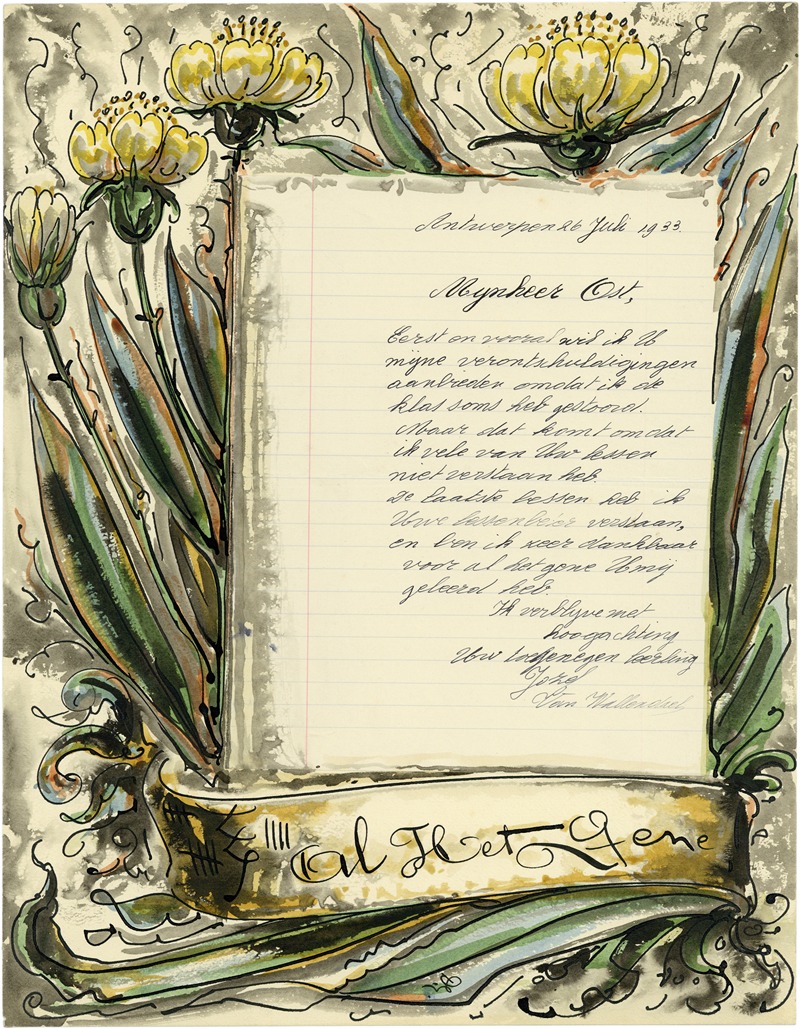 Antwerpen 26 Juli 1933.
Mynheer Ost,
Eerst en vooral wil ik U
mijne verontschuldigingen
aanbieden omdat ik de
klas soms heb gestoord.
Maar dat komt omdat
ik vele van Uw lessen
niet verstaan heb.
De laatste lessen heb ik
Uwe verstaan,
en ben ik zeer dankbaar
voor al het gene U mij
geleerd heb.
Ik verblyve met
hoogachting
Uw toegenegen leerling
Jozef
Van
Al Het Gene